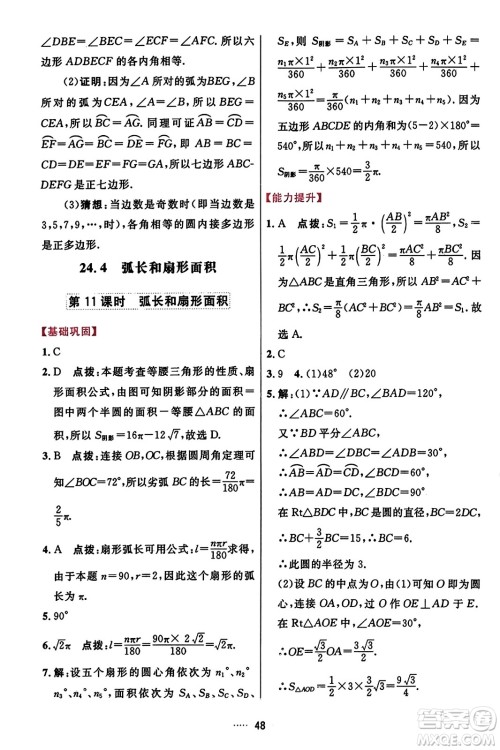 ∠DBE=∠DCE=∠CEB=∠CFB. 所以六
边形 ADBECF 各内角相等.
(2)证明:因为∠A 所对的弧为BEG, ∠B
所对的弧为CEA, ∠A=∠B, 所以BEG=
CEA, 所以BC=AG. 同理可证AB=CD=
EF=AG=BC=DE=FG, 所以七边形AB-
CDEFG 是正七边形.
(3)猜想:当边数是奇数时(当边数是
3,5,7,9,…,时), 各角相等的圆内接多边形
是正多边形.
24.4 弧长和扇形面积
第11课时 弧长和扇形面积
【基础巩固】
1. C
2. D 点拨:本题考查等腰三角形的性质、扇
形面积公式,即可知阴影部分的面积=
图中两个半圆的面积-等腰△ABC 的面
积, 所以S阴影=16π-12√7. 故选 D.
3. B 点拨:连接OB,OC, 由圆周角定理可
知∠BOC=72°, 所以劣弧BC长=72/180 π=
2/5 π.
4. A 点拨:扇形弧长可用公式:l=nπr/180求
得, 由于本题 n=90,r=2, 故选 A.
5. 90°
6. √2π 点拨:l=nπr/180=90π×2√2/180=√2π.
7. 解:设五个扇形的圆心角依次为 n₁°、n₂°、
n₃°、n₄°、n₅°, 则五个扇形的面积依次为
S₁、S₂、S₃、S₄、S₅, 所以S阴影=S₁+S₂+S₃+
S₄+S₅=n₁π×1²/360+n₂π×1²/360+n₃π×1²/360+n₄π×1²/360+
n₅π×1²/360=π/360(n₁+n₂+n₃+n₄+n₅). 因为
五边形 ABCDE 的内角和(5-2)×180°=
540°, 所以n₁+n₂+n₃+n₄+n₅=540, 所以
S阴影=π/360×540=3/2 π.
【能力提升】
1. A 点拨:S₁=1/2 π·(AB/2)²+1/2 π·(AC/2)²
=1/2 π·(AB²/4+AC²/4)=π/8(AB²+AC²), S₂=
1/2 π·(BC/2)²=π/8·BC².
∵△ABC 是直角三角形,∴AB²+AC²=
BC², ∴S₂=π/8(AB²+AC²)=π/8 BC², ∴S₁
=S₂, 故选 A.
2. C
3. 9 4. (1)48° (2)20
5. 解:(1)∵AD∥BC,∠BAD=120°,
∴∠ABC=60°.
又∵BD 平分∠ABC,
∴∠ABD=∠DBC=∠ADB=30°,
∴AB=AD=DC,∠BCD=60°,
∴AB=AD=DC,∠BDC=90°.
在 Rt△BDC 中,BC 是圆的直径,BC=2DC,
∴BC+3/2 BC=15, ∴BC=6.
∴此圆的半径为 3.
(2)设BC 的中点为 O, 由(1)可知 O 即为圆心,
连接 OA, OD, 过 O 作 OE⊥AD 于 E.
在 Rt△AOE 中,∠AOE=30°,
∴OE=√3/2 OA=3√3/2,
∴S△AOD=1/2×3×3√3/2=9√3/4.
48